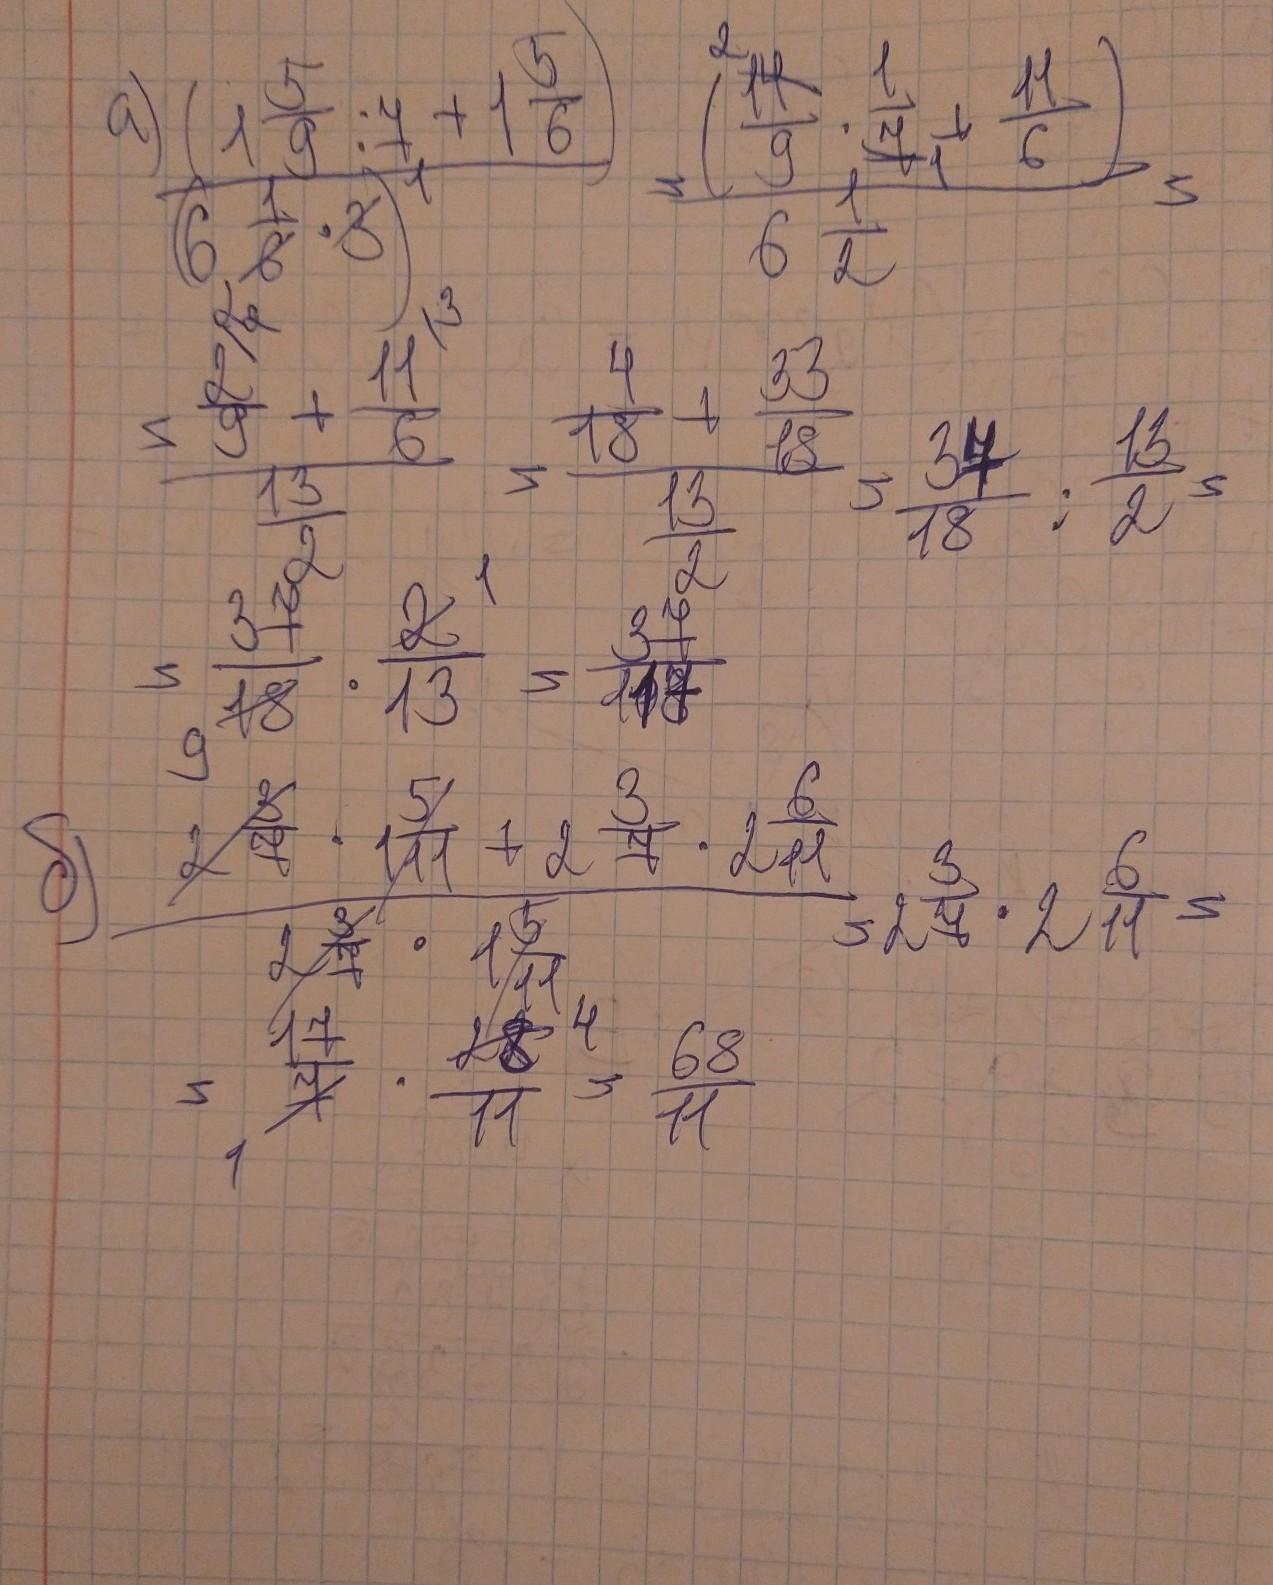 а) (1 5/9 : 7 + 1 5/6) / (6 1/6 · 3) = (14/9 · 1/7 + 11/6) / 6 1/2 =
= (2/9 + 11/6) / 13/2 = (4/18 + 33/18) / 13/2 = 37/18 : 13/2 =
= 37/18 · 2/13 = 37/117
б) (2 3/7 · 1 5/11 + 2 3/7 · 2 6/11) / (2 3/7 · 1 5/11) = 2 3/7 · 2 6/11 =
= 17/7 · 28/11 = 68/11